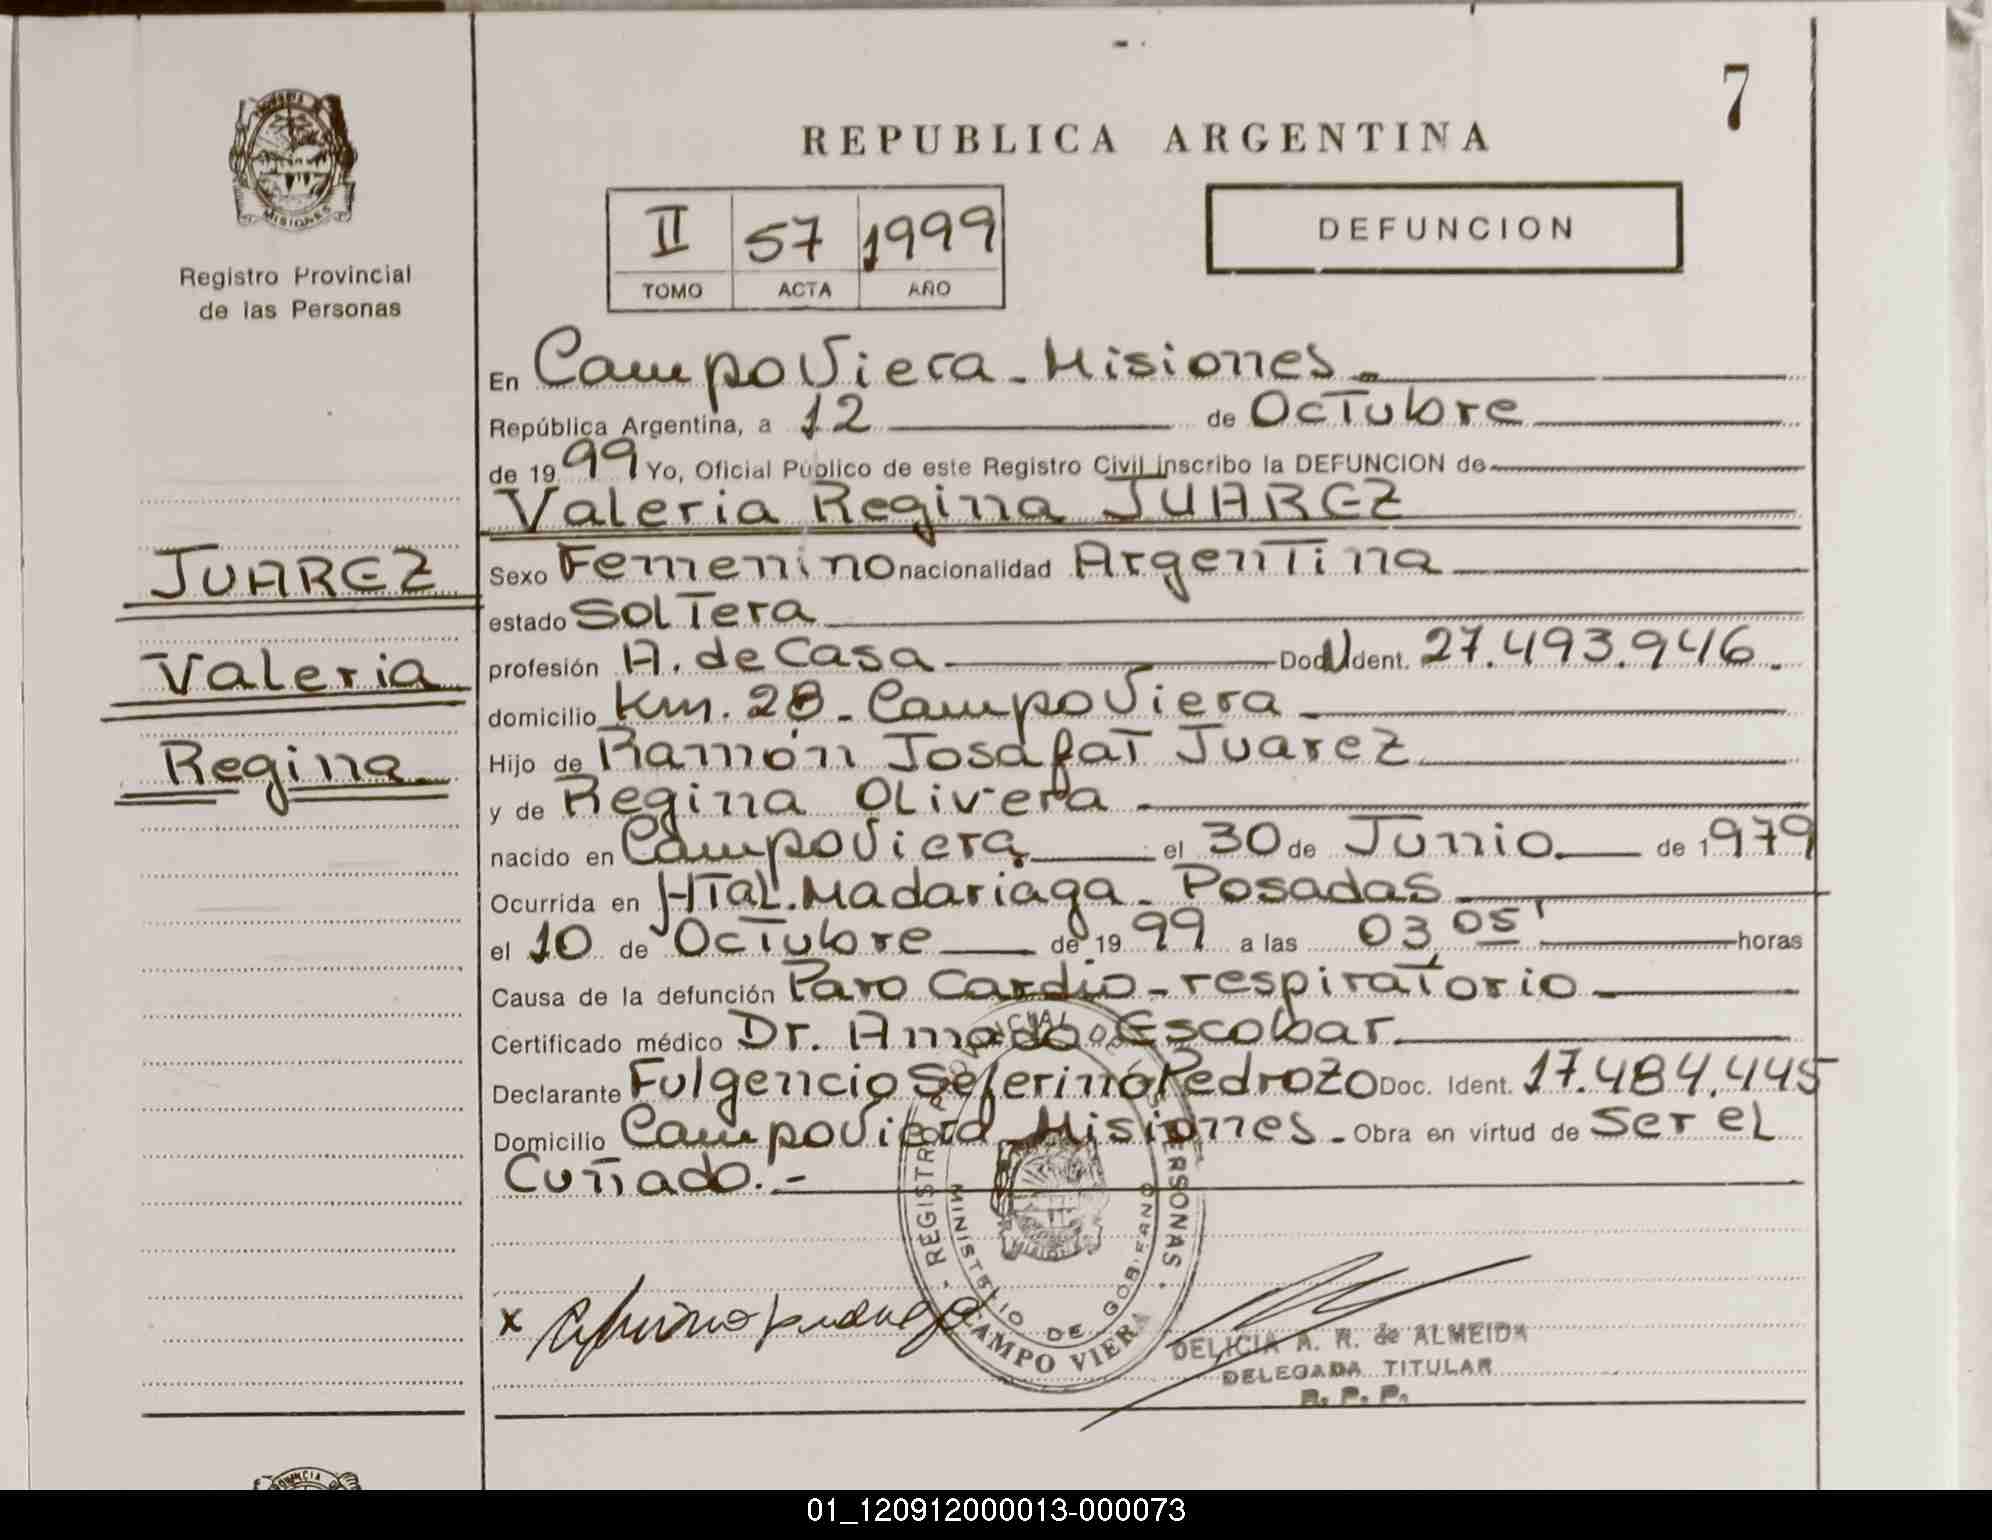 7
REPUBLICA ARGENTINA
MISIONES
Registro Provincial
de las Personas
II 57 1999
TOMO ACTA AÑO
DEFUNCION
En Campo Viera - Misiones -
República Argentina, a 12 de Octubre
de 19 99 Yo, Oficial Público de este Registro Civil inscribo la DEFUNCION de
Valeria Regina JUAREZ
JUAREZ
Valeria
Regina
Sexo Femenino nacionalidad Argentina
estado Soltera
profesión A. de Casa Doc. Ident. 27.493.946.
domicilio Km. 28 - Campo Viera
Hijo de Ramón Josafat Juarez
y de Regina Olivera
nacido en Campo Viera el 30 de Junio de 1979
Ocurrida en Htal. Madariaga - Posadas
el 10 de Octubre de 19 99 a las 03 05' horas
Causa de la defunción Paro Cardio-respiratorio
Certificado médico Dr. Amado Escobar
Declarante Fulgencio Seferino Pedrozo Doc. Ident. 17.484.445
Domicilio Campo Viera - Misiones - Obra en virtud de Ser el
Cuñado.-
REGISTRO PROVINCIAL DE LAS PERSONAS
MINISTERIO DE GOBIERNO
CAMPO VIERA
x
DELICIA A. R. de ALMEIDA
DELEGADA TITULAR
R. P. P.
01_120912000013-000073